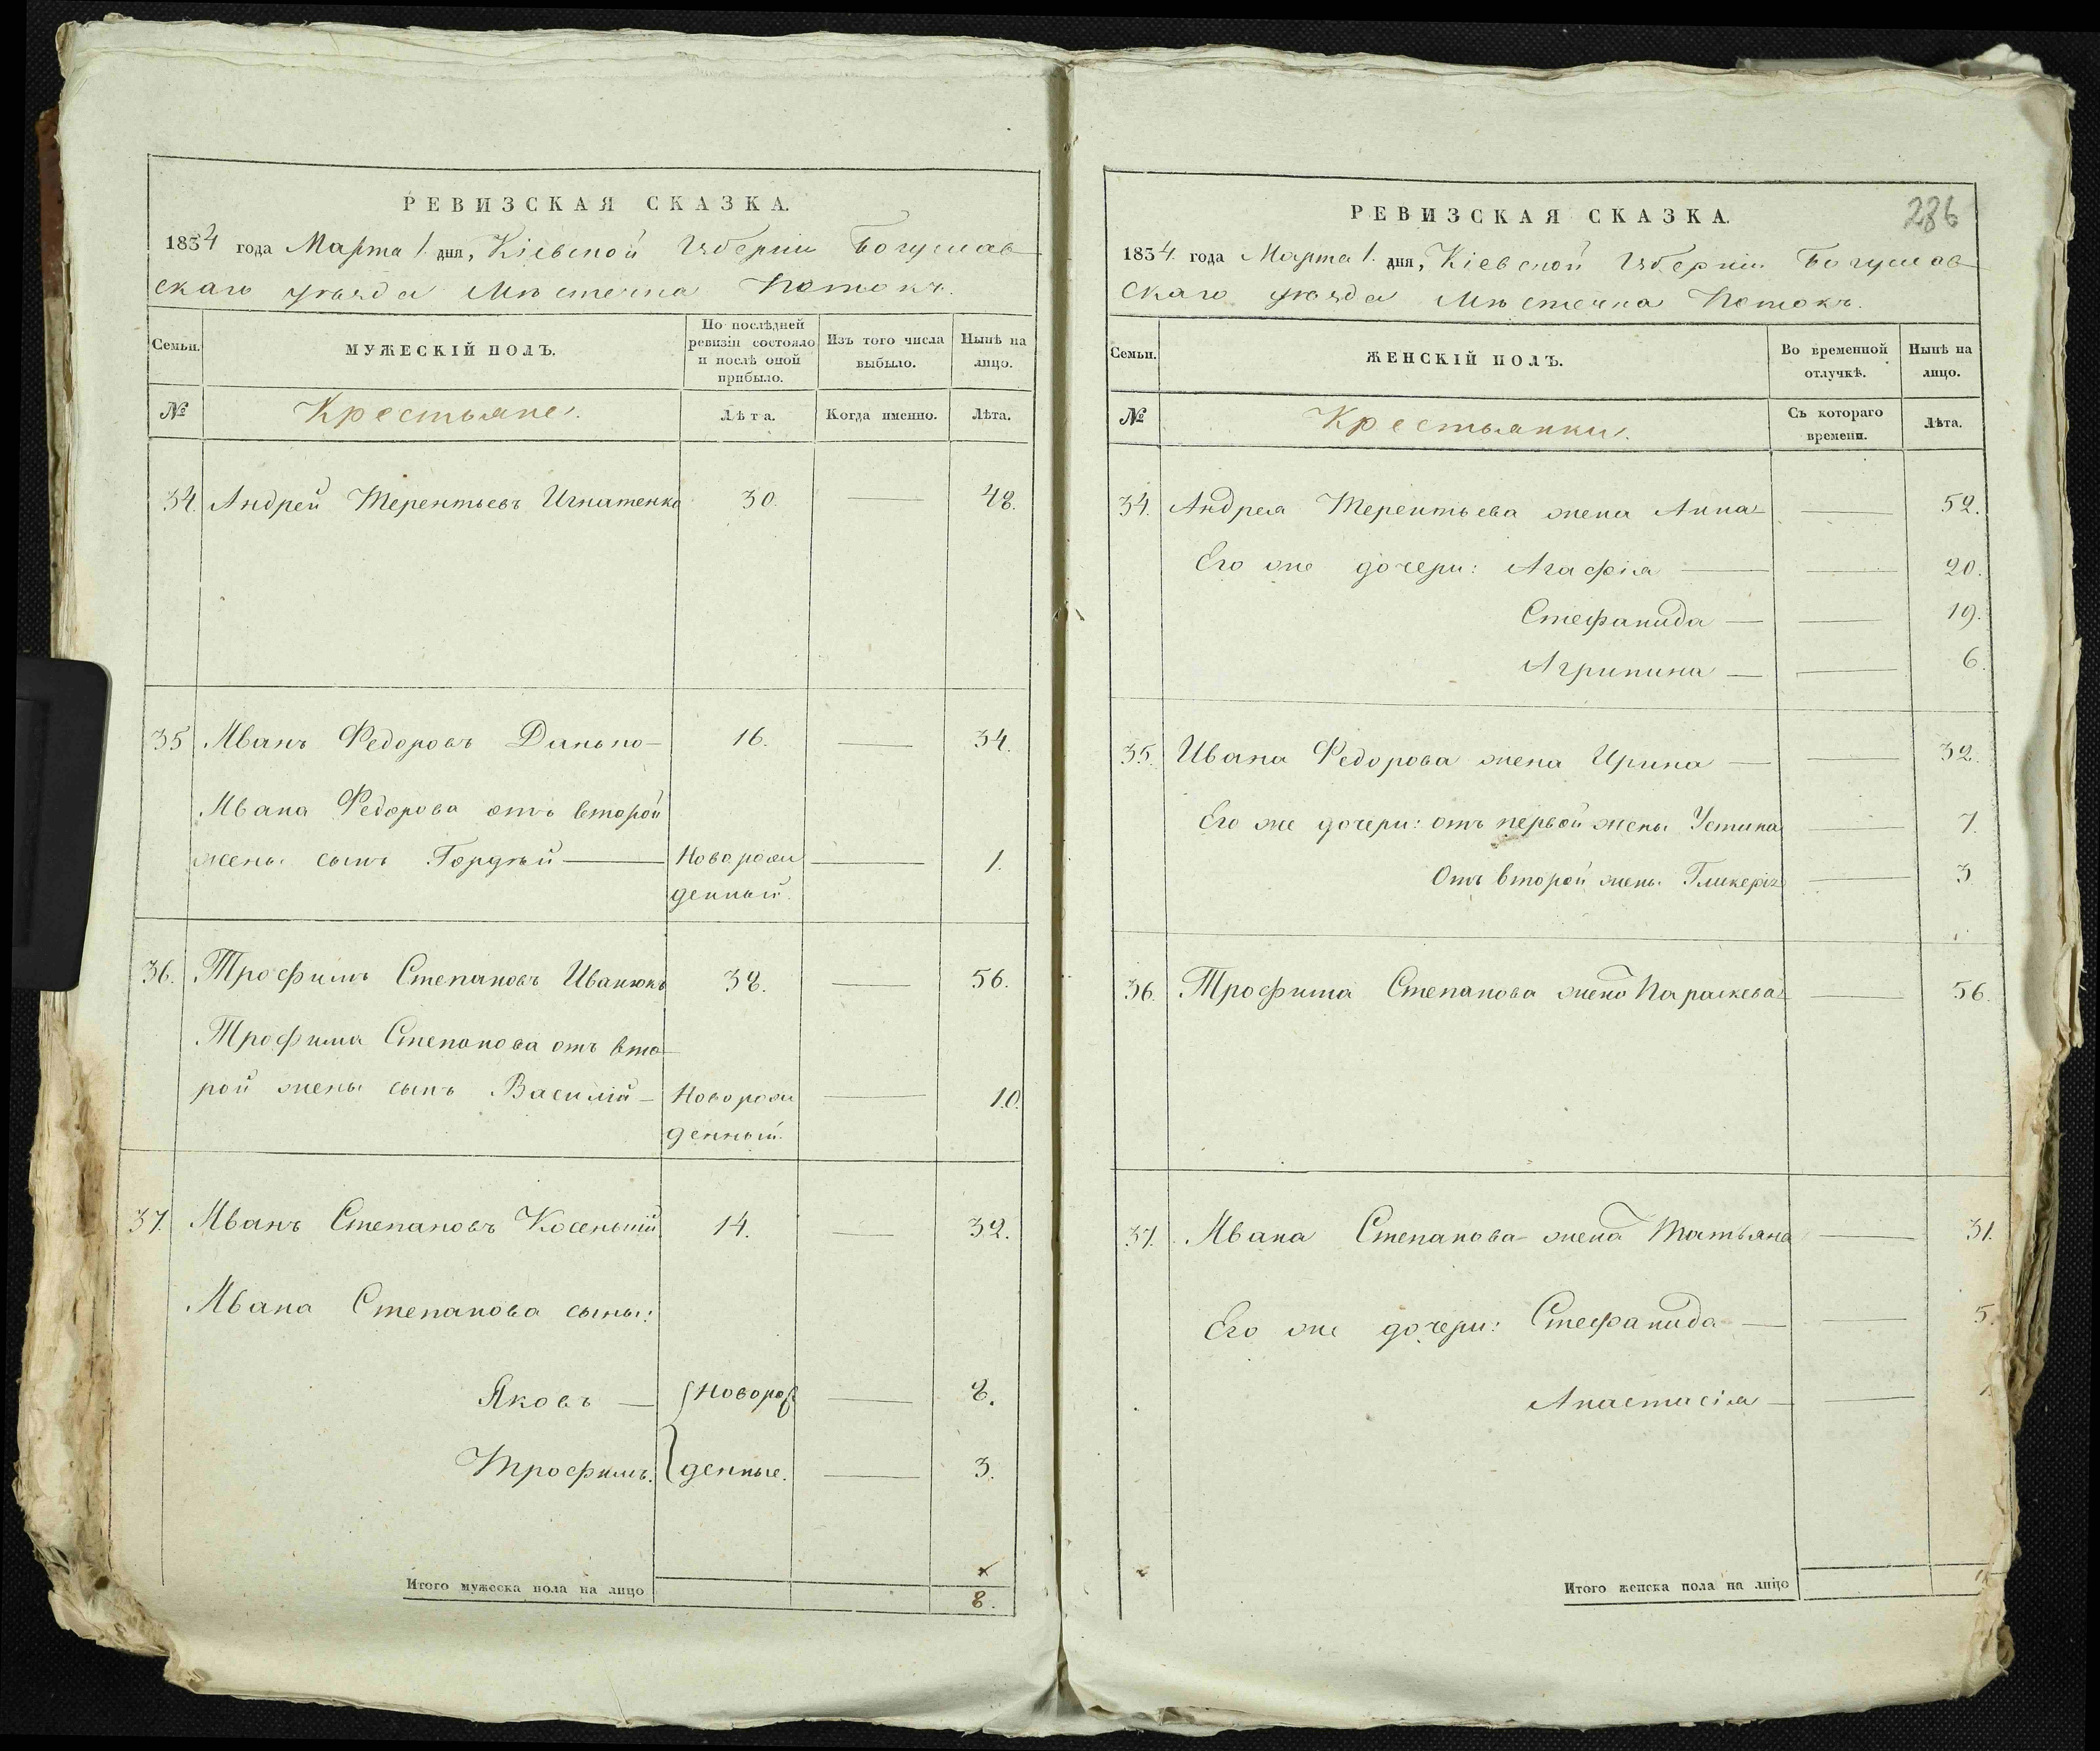 РЕВИЗСКАЯ СКАЗКА.
1834 года Марта 1. дня, Кіевской Губерніи Богуслав
скаго уѣзда Мѣстечка Потокъ.
Семьи.
МУЖЕСКІЙ ПОЛЪ.
По послѣдней
ревизіи состояло
и послѣ оной
прибыло.
Изъ того числа
выбыло.
Нынѣ на
лицо.
№
Крестьяне.
Лѣта.
Когда именно.
Лѣта.
34. Андрей Терентьевъ Игнатенко 30. 48.
35 Иванъ Федоровъ Данько 16. 34.
Ивана Федорова отъ второй
жены сынъ Гордѣй Новорож
1.
денный.
36. Трофимъ Степановъ Иванюкъ 38. 56.
Трофима Степанова отъ вто
рой жены сынъ Василій Новорож
10.
денный.
37. Иванъ Степановъ Косенькій 14. 32.
Ивана Степанова сыны:
Яковъ Новорож 8.
Трофимъ. денные. 3.
Итого мужеска пола на лицо 8.
286
РЕВИЗСКАЯ СКАЗКА.
1834 года Марта 1. дня, Кіевской Губерніи Богуслав
скаго уѣзда Мѣстечка Потокъ.
Семьи.
ЖЕНСКІЙ ПОЛЪ.
Во временной
отлучкѣ.
Нынѣ на
лицо.
№
Крестьянки.
Съ котораго
времени.
Лѣта.
34. Андрея Терентьева жена Анна 52.
Его же дочери: Агафія 20.
Стефанида 19.
Агрипина 6.
35. Ивана Федорова жена Ирина 32.
Его же дочери: отъ первой жены Устина 7.
Отъ второй жены Гликерія 3
36. Трофима Степанова жена Параскева 56.
37. Ивана Степанова жена Татьяна 31.
Его же дочери: Стефанида 5.
Анастасія 1.
Итого женска пола на лицо